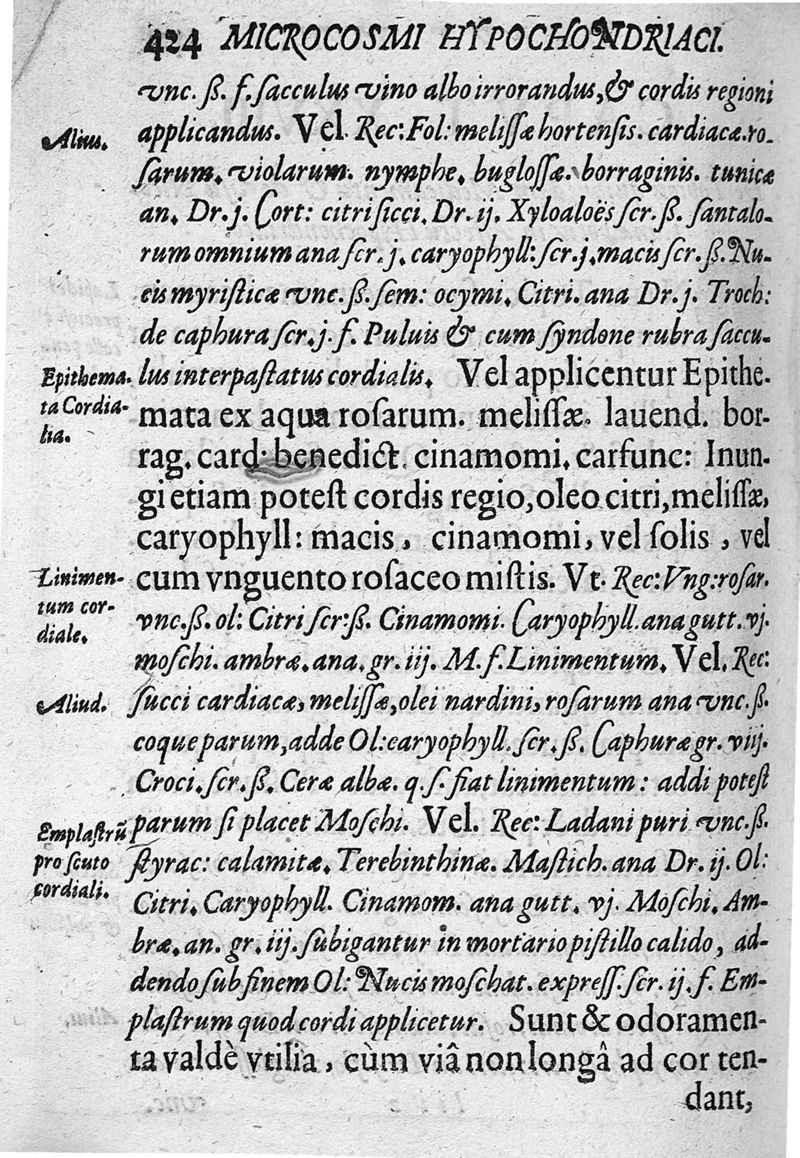 424 MICROCOSMI HYPOCHONDRIACI.
vnc. ß. f. ſacculus vino albo irrorandus, & cordis regioni
Alius.
applicandus. Vel. Rec: Fol: meliſſæ hortenſis. cardiacæ. ro-
ſarum. violarum. nymphe. bugloſſæ. borraginis. tunicæ
an. Dr. j. Cort: citri ſicci. Dr. ij. Xyloaloës ſcr. ß. ſantalo-
rum omnium ana ſcr. j. caryophyll: ſcr. j. macis ſcr. ß. Nu-
cis myriſticæ vnc. ß. ſem: ocymi. Citri. ana Dr. j. Troch:
de caphura ſcr. j. f. Puluis & cum ſyndone rubra ſaccu-
Epithema-
ta Cordia-
lia.
lus interpaſtatus cordialis. Vel applicentur Epithe-
mata ex aqua roſarum. meliſſæ. lauend. bor-
rag. card. benedict. cinamomi. carfunc: Inun-
gi etiam poteſt cordis regio, oleo citri, meliſſæ,
caryophyll: macis, cinamomi, vel ſolis, vel
Linimen-
tum cor-
diale.
cum vnguento roſaceo miſtis. Vt. Rec: Vng: roſar.
vnc. ß. ol: Citri ſcr: ß. Cinamomi. Caryophyll. ana gutt. vj.
moſchi. ambræ. ana. gr. iij. M. f. Linimentum. Vel. Rec:
Aliud.
ſucci cardiacæ, meliſſæ, olei nardini, roſarum ana vnc. ß.
coque parum, adde Ol: earyophyll. ſcr. ß. Caphuræ gr. viij.
Croci. ſcr. ß. Ceræ albæ. q. ſ. fiat linimentum: addi poteſt
Emplaſtrũ
pro ſcuto
cordiali.
parum ſi placet Moſchi. Vel. Rec: Ladani puri vnc. ß.
ſtyrac: calamitæ. Terebinthinæ. Maſtich. ana Dr. ij. Ol:
Citri. Caryophyll. Cinamom. ana gutt. vj. Moſchi. Am-
bræ. an. gr. iij. ſubigantur in mortario piſtillo calido, ad-
dendo ſub finem Ol: Nucis moſchat. expreſſ. ſcr. ij. f. Em-
plaſtrum quod cordi applicetur. Sunt & odoramen-
ta valdè vtilia, cùm viâ non longâ ad cor ten-
dant,